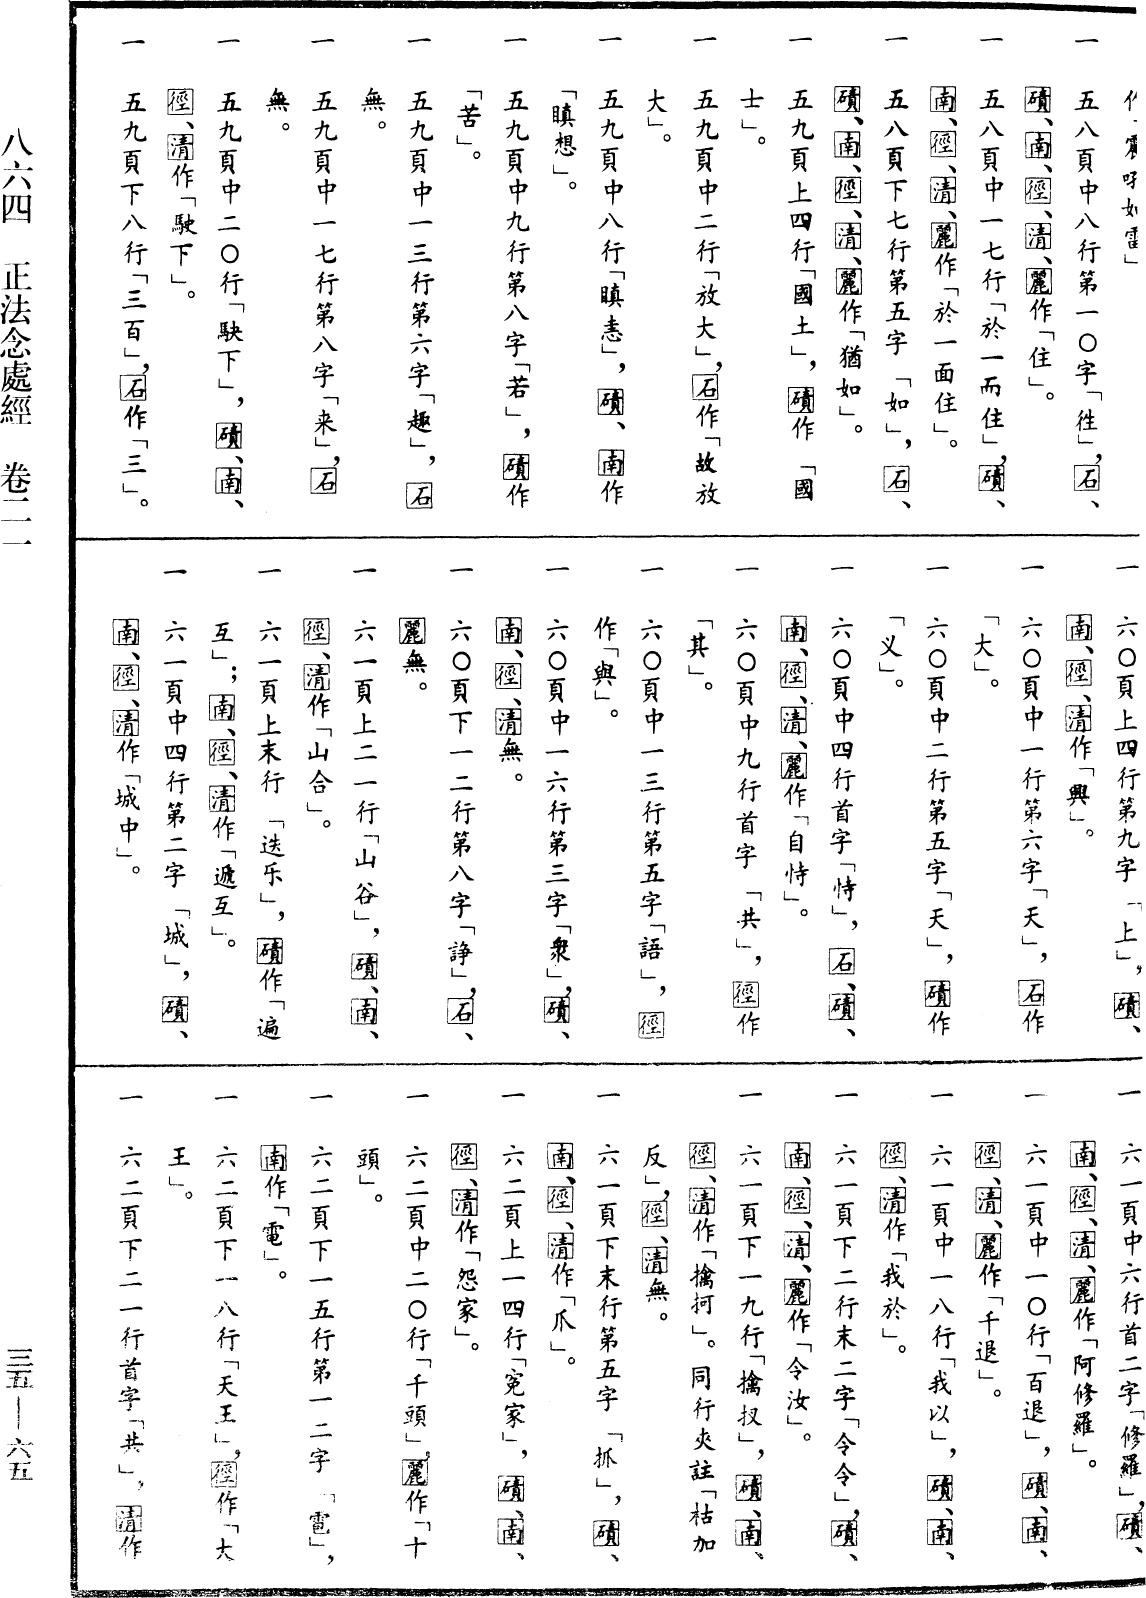 作「震吼如雷」
一 五八頁中八行第一〇字「徃」，石、
磧、南、徑、清、麗作「住」。
一 五八頁中一七行「於一而住」，磧、
南、徑、清、麗作「於一面住」。
一 五八頁下七行第五字「如」，石、
磧、南、徑、清、麗作「猶如」。
一 五九頁上四行「國土」，磧作「國
士」。
一 五九頁中二行「放大」，石作「故放
大」。
一 五九頁中八行「瞋恚」，磧、南作
「瞋想」。
一 五九頁中九行第八字「若」，磧作
「苦」。
一 五九頁中一三行第六字「趣」，石
無。
一 五九頁中一七行第八字「来」，石
無。
一 五九頁中二〇行「駃下」，磧、南、
徑、清作「駛下」。
一 五九頁下八行「三百」，石作「三」。
一 六〇頁上四行第九字「上」，磧、
南、徑、清作「興」。
一 六〇頁中一行第六字「天」，石作
「大」。
一 六〇頁中二行第五字「天」，磧作
「义」。
一 六〇頁中四行首字「恃」，石、磧、
南、徑、清、麗作「自恃」。
一 六〇頁中九行首字「共」，徑作
「其」。
一 六〇頁中一三行第五字「語」，徑
作「與」。
一 六〇頁中一六行第三字「衆」，磧、
南、徑、清無。
一 六〇頁下一二行第八字「諍」，石、
麗無。
一 六一頁上二一行「山谷」，磧、南、
徑、清作「山合」。
一 六一頁上末行「迭乐」，磧作「遍
互」；南、徑、清作「遞互」。
一 六一頁中四行第二字「城」，磧、
南、徑、清作「城中」。
一 六一頁中六行首二字「修羅」，磧、
南、徑、清、麗作「阿修羅」。
一 六一頁中一〇行「百退」，磧、南、
徑、清、麗作「千退」。
一 六一頁中一八行「我以」，磧、南、
徑、清作「我於」。
一 六一頁下二行末二字「令令」，磧、
南、徑、清、麗作「令汝」。
一 六一頁下一九行「擒扠」，磧、南、
徑、清作「擒抲」。同行夾註「枯加
反」，徑、清無。
一 六一頁下末行第五字「抓」，磧、
南、徑、清作「爪」。
一 六二頁上一四行「寃家」，磧、南、
徑、清作「怨家」。
一 六二頁中二〇行「千頭」，麗作「十
頭」。
一 六二頁下一五行第一二字「雹」，
南作「電」。
一 六二頁下一八行「天王」，徑作「大
王」。
一 六二頁下二一行首字「共」，清作
八六四 正法念處經 卷二一
三五—六五